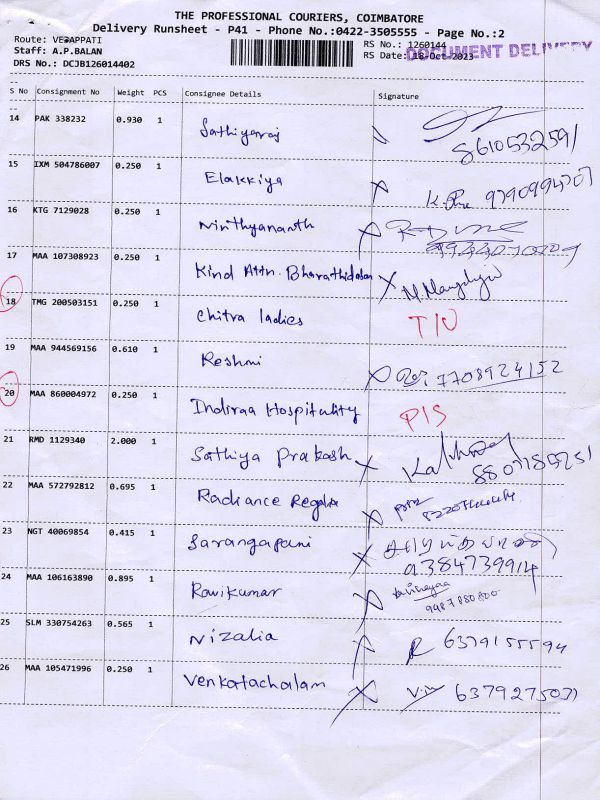 THE PROFESSIONAL COURIERS, COIMBATORE
Delivery Runsheet - P41 - Phone No.:0422-3505555 - Page No.:2
Route: VEDAPPATI
Staff: A.P.BALAN
DRS No.: DCJB126014402
RS No.: 1260144
RS Date: 18-Oct-2023
DOCUMENT DELIVERY
S No Consignment No Weight PCS Consignee Details Signature
14 PAK 338232 0.930 1 Sathiyaraj 8610532591
15 IXM 504786007 0.250 1 Elakkiya
16 KTG 7129028 0.250 1 Nirthyananth
17 MAA 107308923 0.250 1 Kind Attn. Bharathidasan
18 TMG 200503151 0.250 1 Chitra ladies
19 MAA 944569156 0.610 1 Reshmi 7708924152
20 MAA 860004972 0.250 1 Indiraa Hospitality
21 RMD 1129340 2.000 1 Sathiya Prakash
22 MAA 572792812 0.695 1 Radiance Regalia
23 NGT 40069854 0.415 1 Sarangapani 9384739914
24 MAA 106163890 0.895 1 Ravikumar
25 SLM 330754263 0.565 1 Nizalia 6379155594
26 MAA 105471996 0.250 1 Venkatachalam